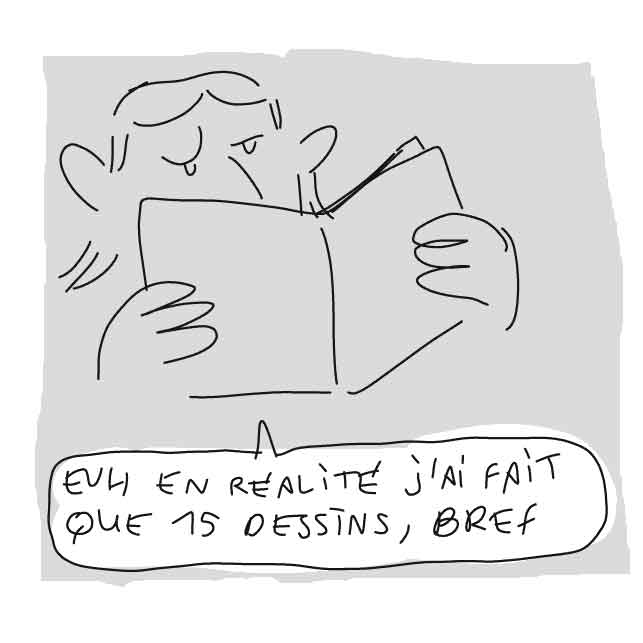 EUH EN RÉALITÉ J'AI FAIT
QUE 15 DESSINS, BREF